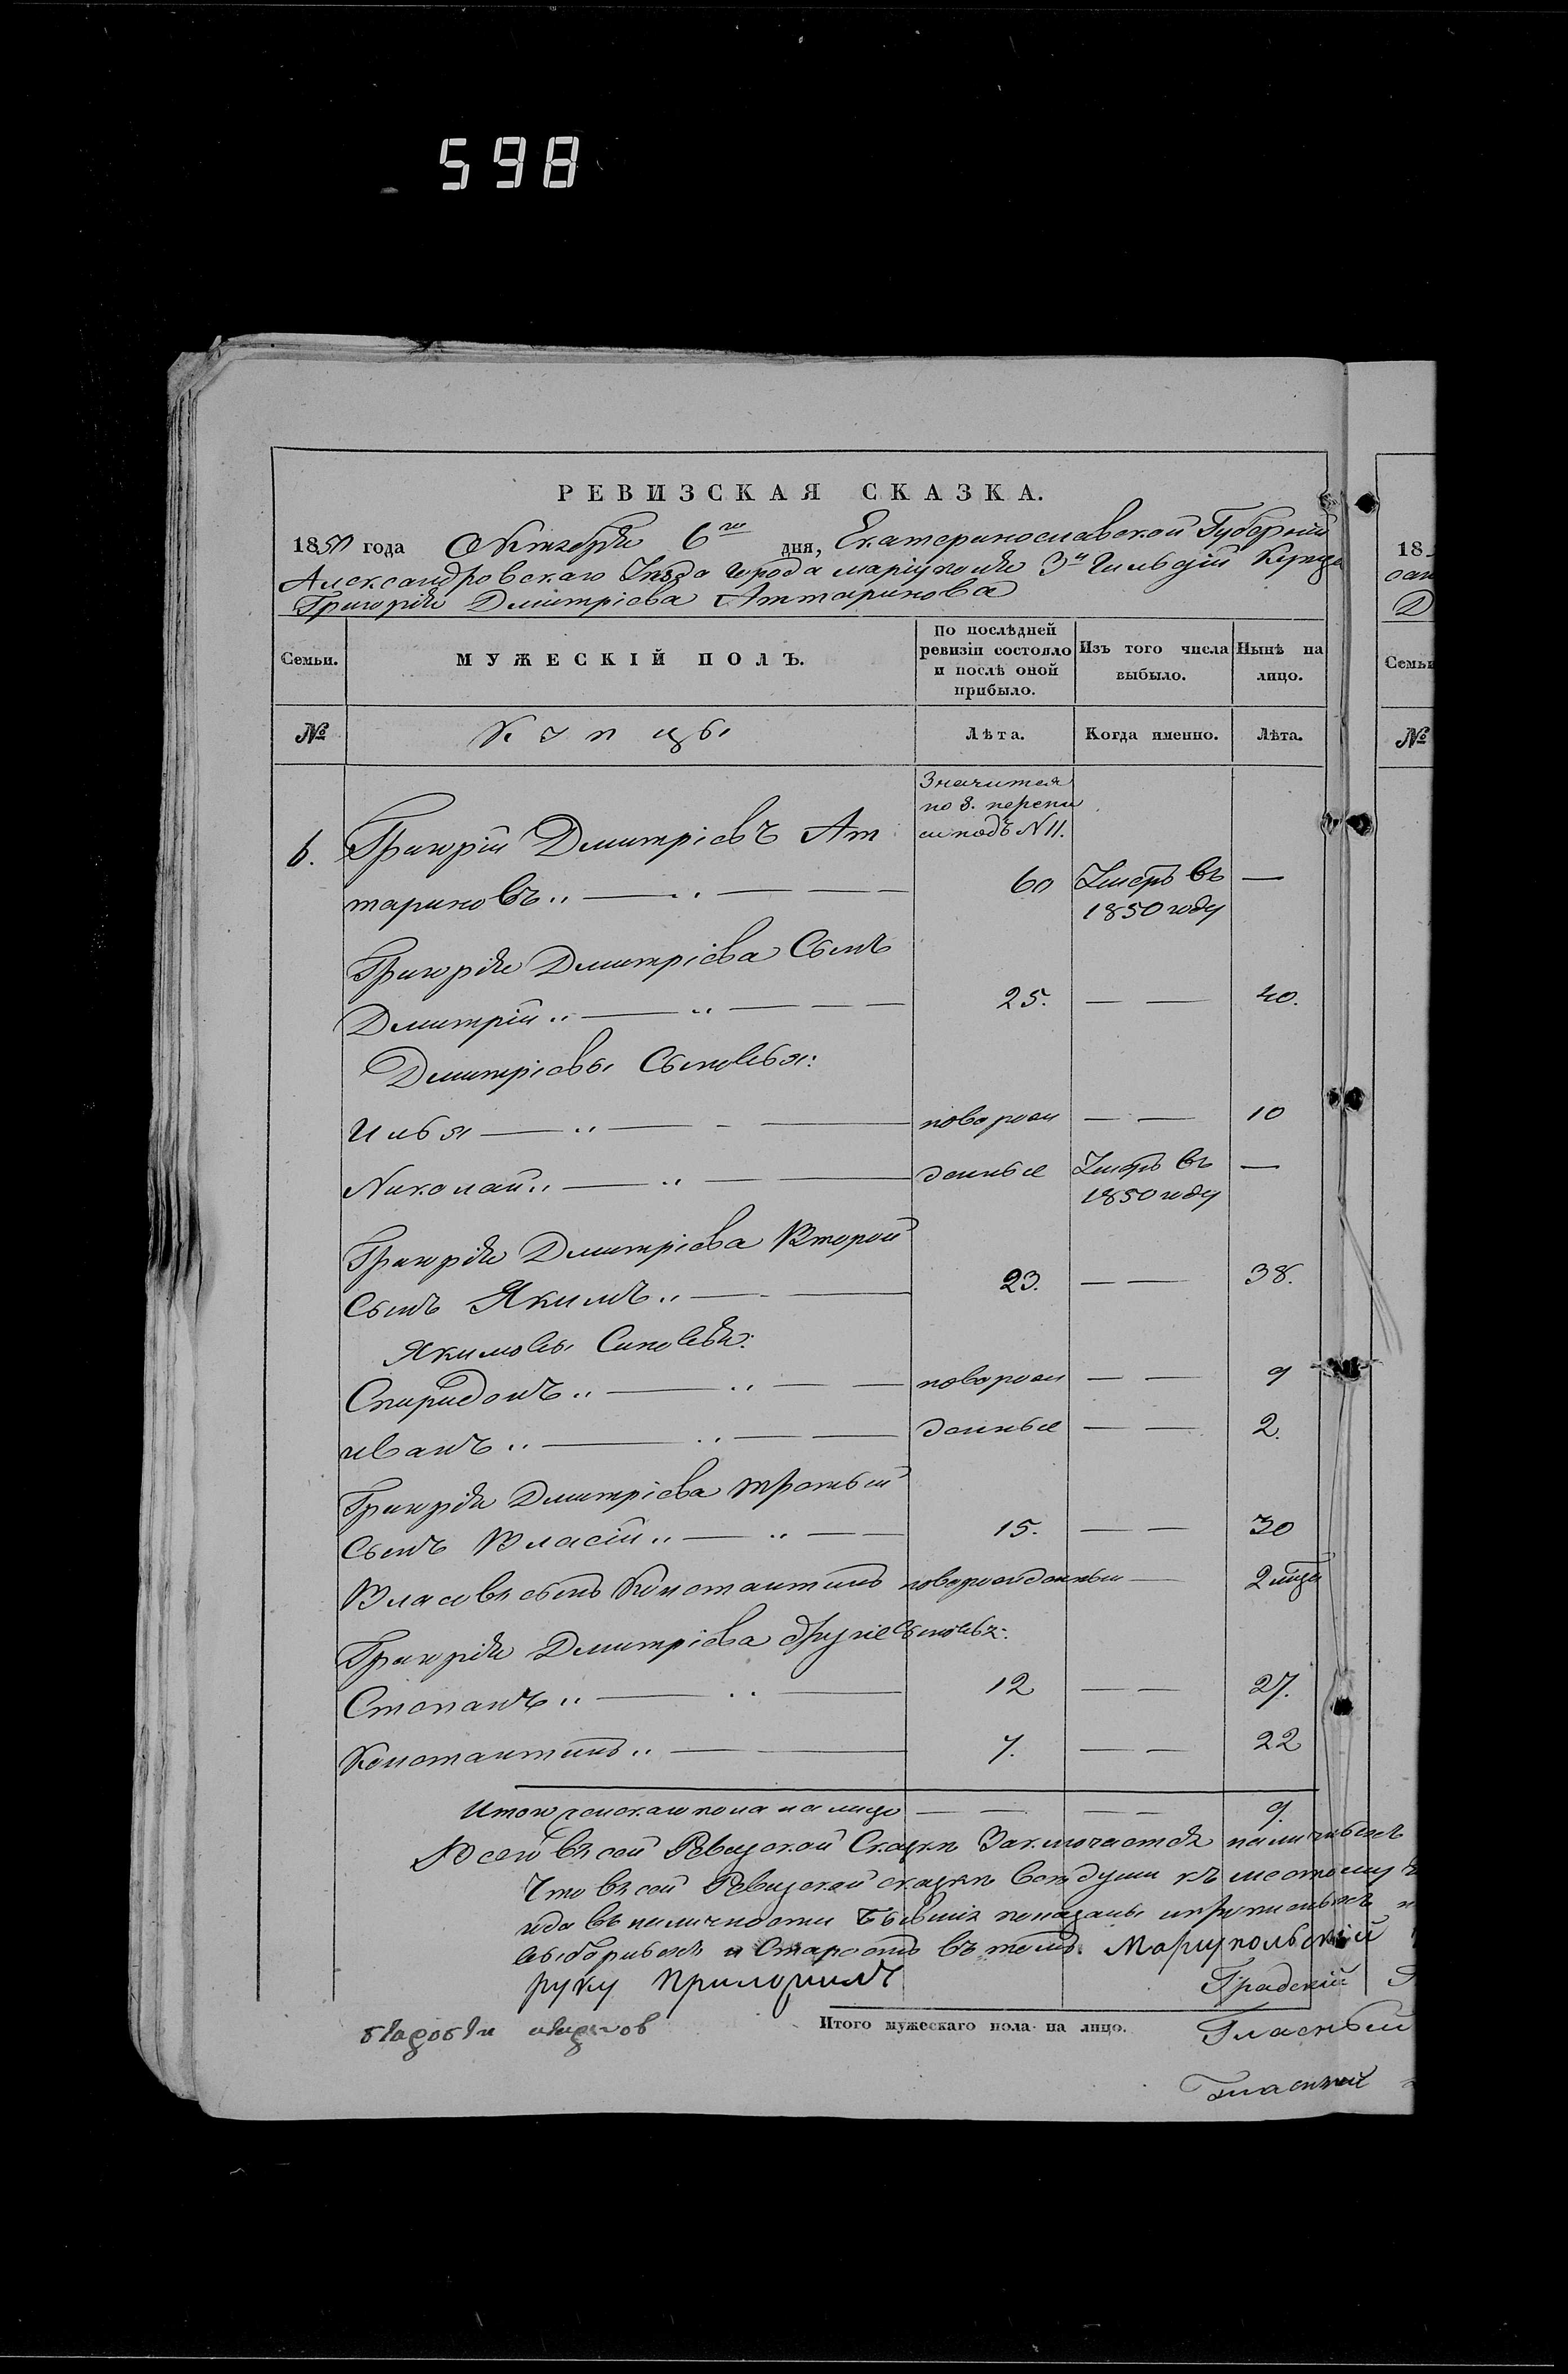 598
РЕВИЗСКАЯ СКАЗКА.
1850 года Октября 6го дня, Екатеринославской Губерніи
Александровскаго Уезда города маріуполя 3й Гильдіи Купца
Григорія Дмитріева Аттаринова
Семьи. МУЖЕСКІЙ ПОЛЪ. По послѣдней ревизіи состояло и послѣ оной прибыло. Изъ того числа выбыло. Нынѣ на лицо.
№ Купцы Лѣта. Когда именно. Лѣта.
Значится
по 8. перепи
си подъ N 11.
6. Григорій Дмитріевъ Ат
тариновъ 60 Умеръ въ 1850 году —
Григорія Дмитріева Сынъ
Дмитрій 25. — — 40.
Дмитріевы Сыновья:
Илья новорож — — 10
Николай денные Умеръ въ 1850 году —
Григорія Дмитріева Второй
Сынъ Якимъ 23. — — 38.
Якимовы Синовья:
Спиридонъ новорож — — 9
иванъ денные — — 2.
Григорія Дмитріева третьей
Сынъ Власій 15. — — 30
Власовъ сынъ Константинъ новорожденный — 2 мца
Григорія Дмитріева другіе Сыновья:
Степанъ 12 — — 27.
Константинъ 7. — — 22
Итого мужскаго пола на лицо — — — — 9.
Всего въ сей Ревизской Сказке Заключается наличныхъ
Что въ сей Ревизской сказке все души къ
въ наличности бывшія показаны и
выборныхъ и Старость въ томъ. Маріупольскій
руку приложилъ Градскій
Итого мужескаго пола на лицо. Гласный
Гласный
18
Семьи
№